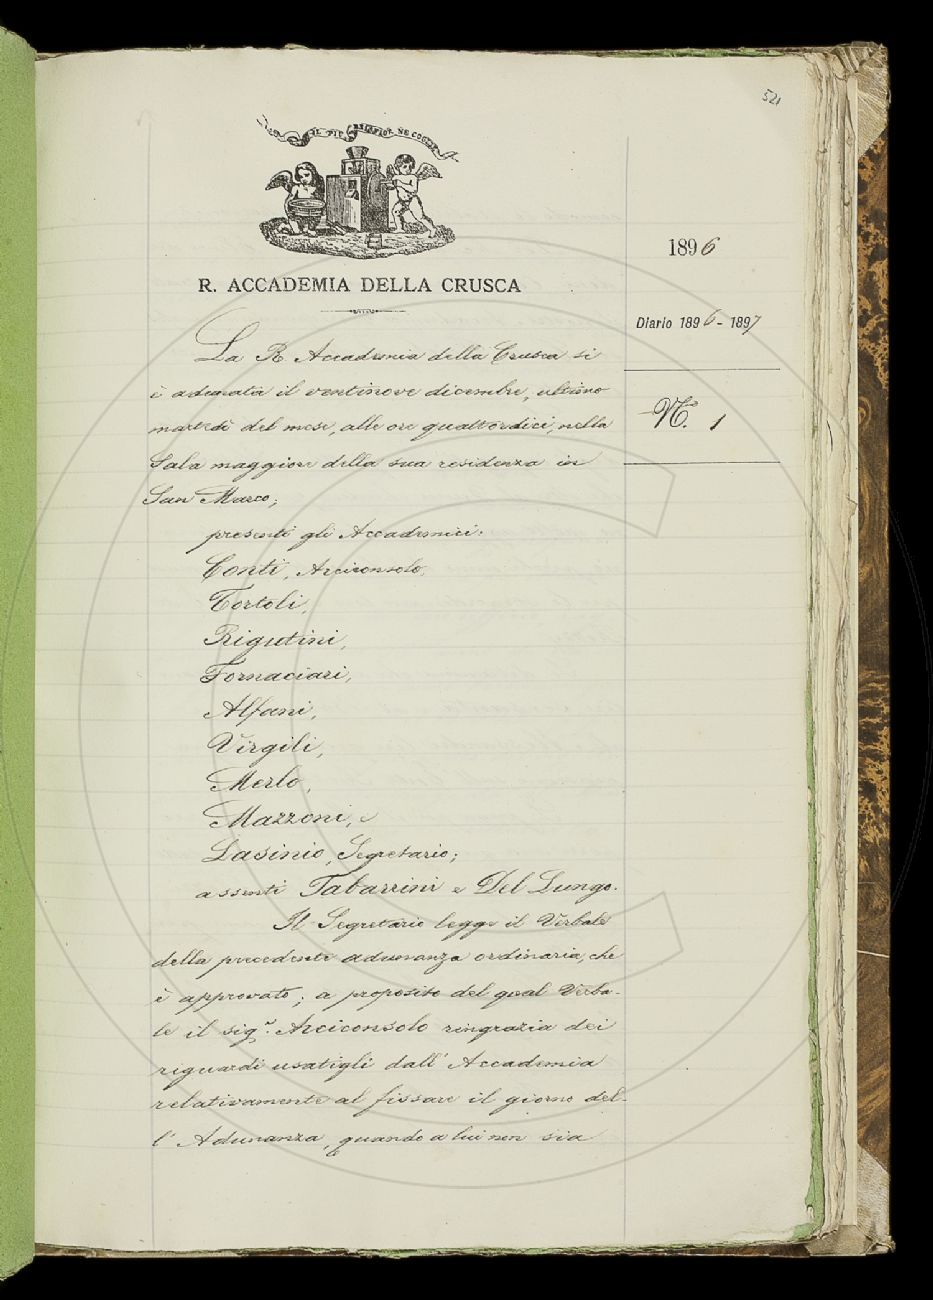 521
IL PIÙ BEL FIOR NE COGLIE
R. ACCADEMIA DELLA CRUSCA
1896
Diario 1896-1897
N. 1
La R. Accademia della Crusca si
è adunata il ventinove dicembre, ultimo
martedì del mese, alle ore quattordici, nella
Sala maggiore della sua residenza in
San Marco;
presenti gli Accademici:
Conti, Arciconsolo,
Tortoli,
Rigutini,
Fornaciari,
Alfani,
Virgili,
Merlo,
Mazzoni, e
Lasinio, Segretario;
assenti Tabarrini e Del Lungo.
Il Segretario legge il Verbale
della precedente adunanza ordinaria, che
è approvato; a proposito del qual Verba-
le il sigr. Arciconsolo ringrazia dei
riguardi usatigli dall'Accademia
relativamente al fissare il giorno del-
l'Adunanza, quando a lui non sia